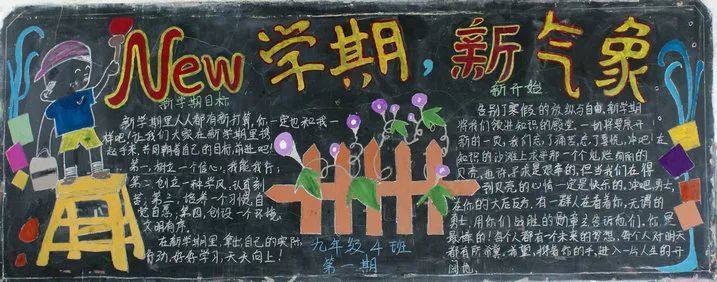 New 学期,新气象
新学期目标
新学期里人人都有新打算,你一定也和我一
样吧!让我们大家在新学期里携
起手来,共同朝着自己的目标,前进吧!
第一,树立一个信心,我能我行;
第二,创立一种学风,认真刻
苦;第三,培养一个习惯,自
觉自愿;第四,创设一个环境,
文明有序.
在新学期里,拿出自己的实际
行动,好好学习,天天向上!
九年级4班
第一期
新开始
告别了寒假的放纵与自由,新学期
将我们领进知识的殿堂,一切将要展开
新的一页,我们忘了痛苦,忘了
知识的沙滩上求寻那一个个灿烂
贝壳,也许寻求是艰辛的,但当我们在得
到贝壳的心情一定是快乐的,冲吧,勇士,
在你的大后方,有一群人在看着你,无谓的
勇士,用你们战胜的勋章去告诉他们,你是
最棒的!每个人都有一个未来的梦想,每个人对明天
都有所希望,朝着你的手,进入一片人生的开
阔地.